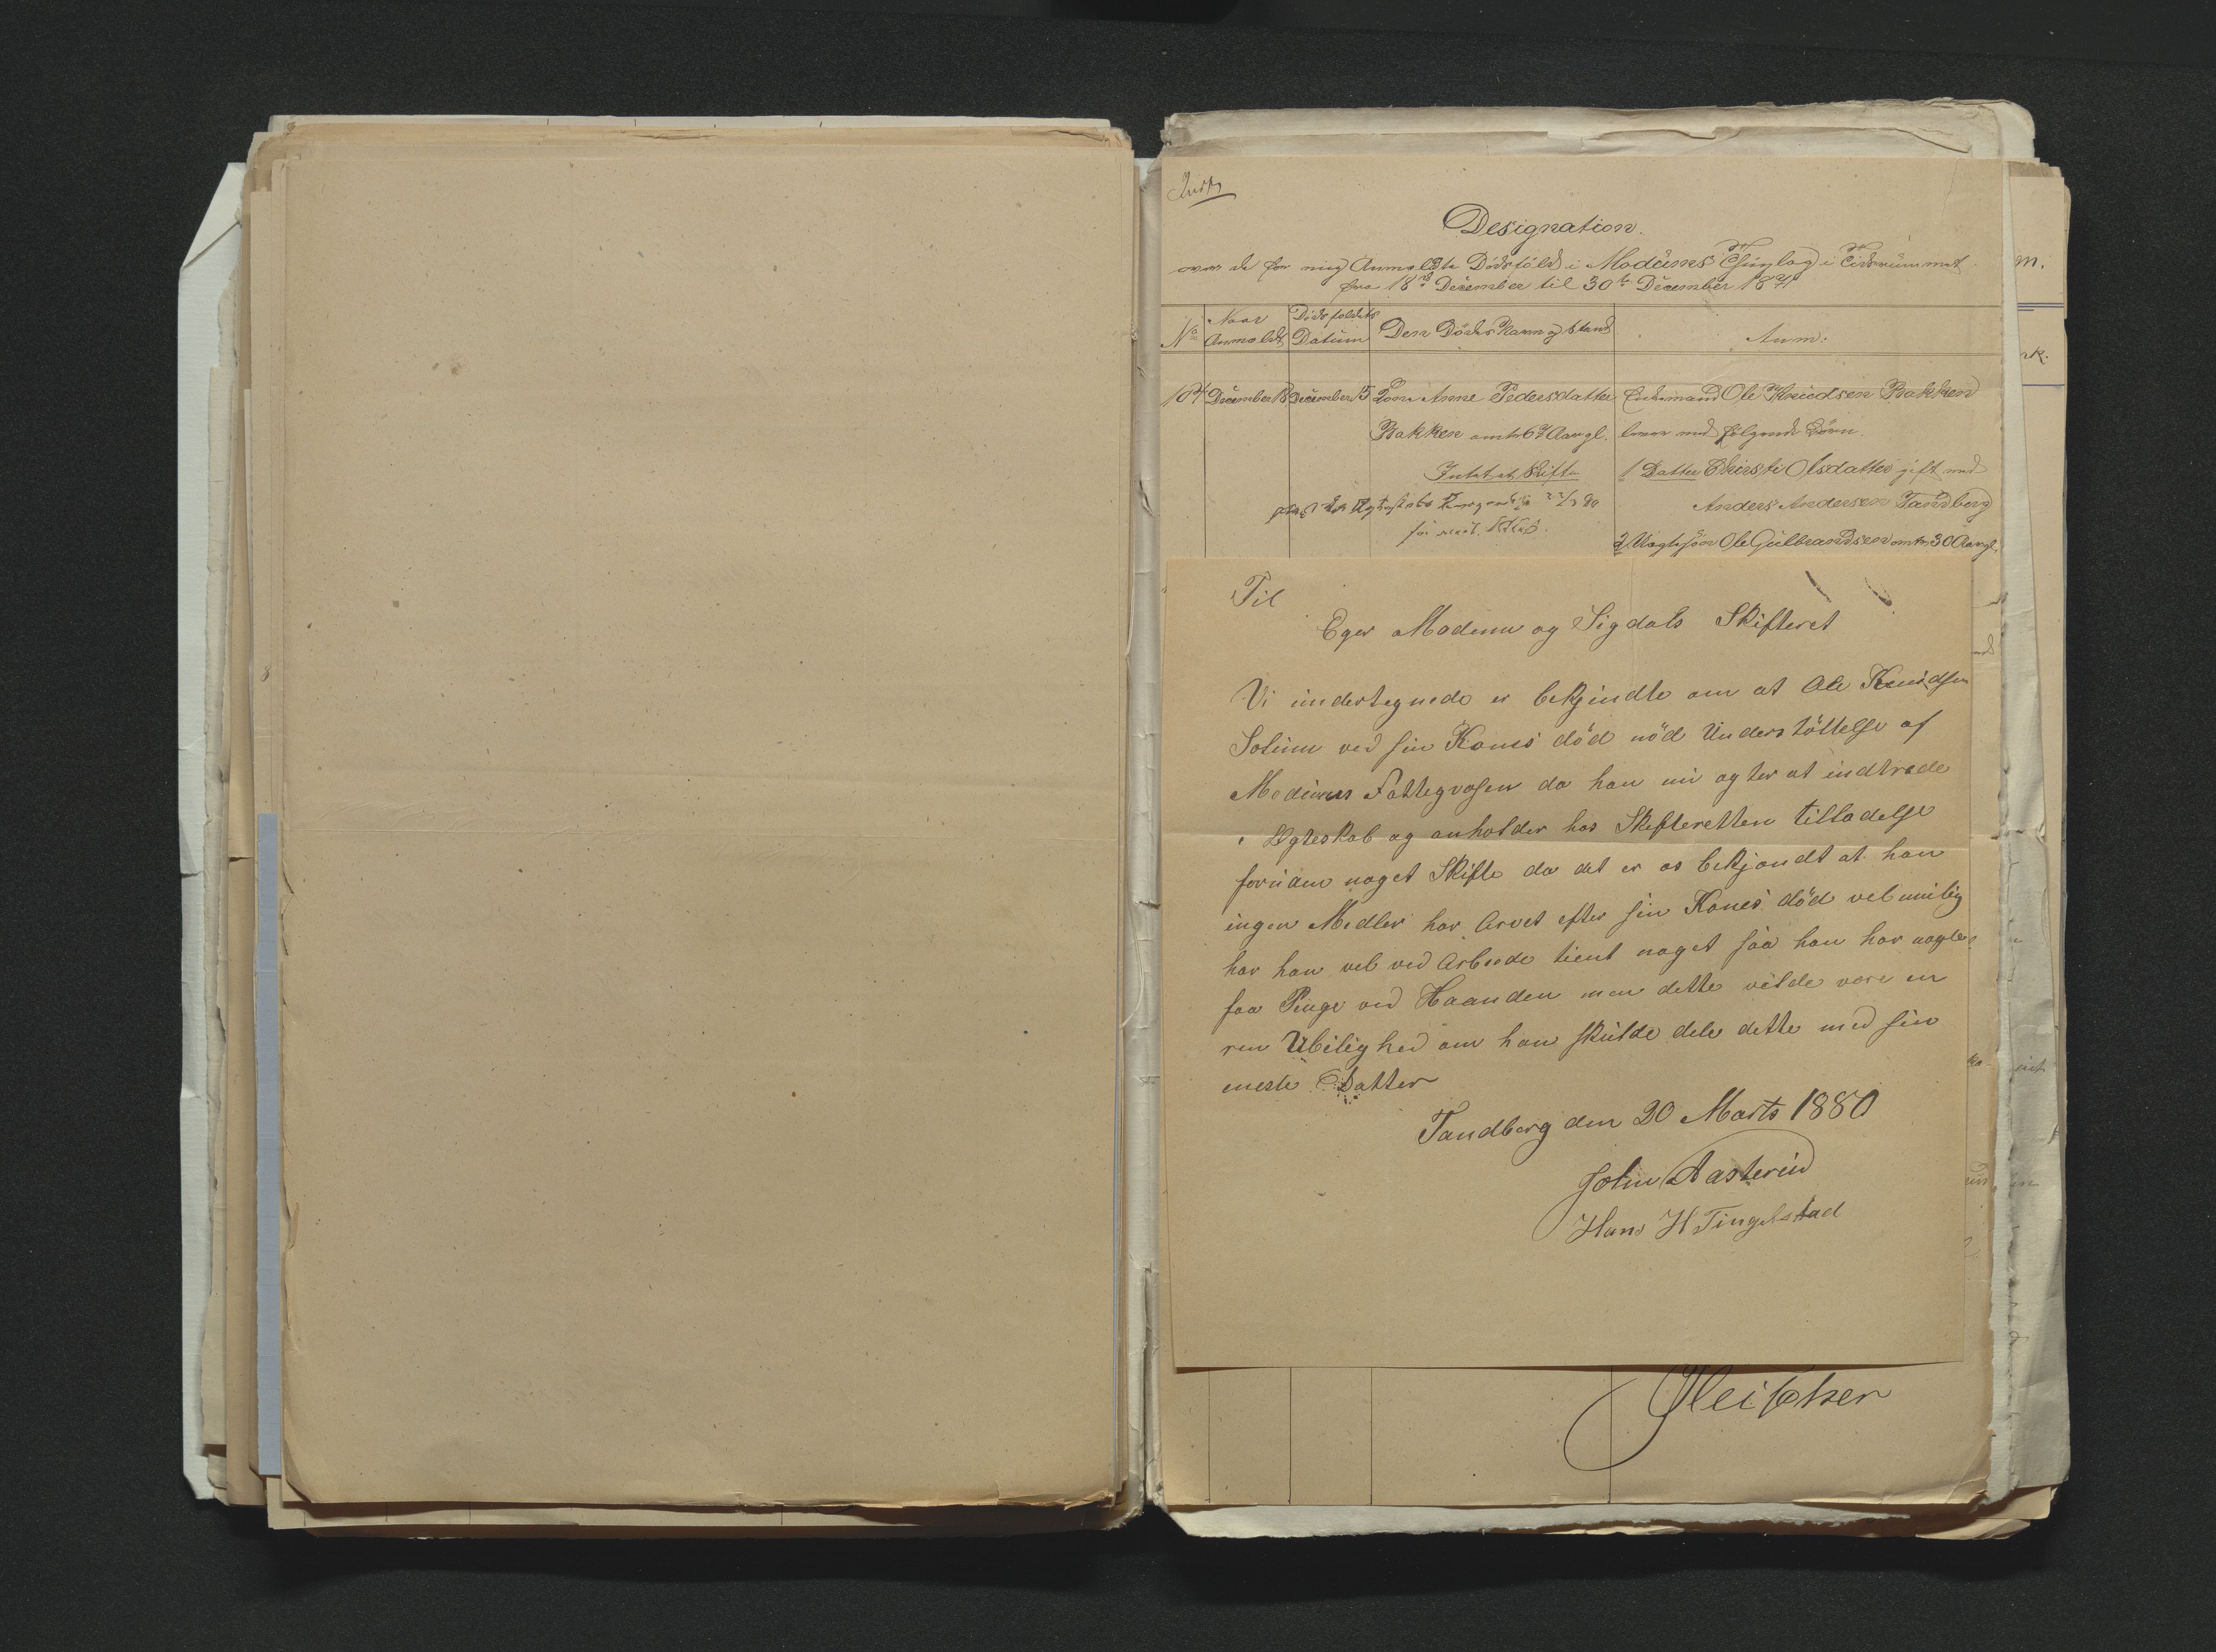 Designation.
over de for mig Anmeldte Dödsfald i Modums Thinglag i Tidsrummet
fra 18de December til 30te December 1871
No
Naar Anmeldt
Dödsfaldets Datum
Den Dödes Navn og Stand
Anm:
107 December 18 December 15 Kone Anne Pedersdatter Enkemand Ole Knudsen Bakken
Bakken omtr 67 Aar gl. lever med følgende Börn
Intet at Skifte 1 Datter Chirsti Olsdatter gift med
22/3 80 Anders Andersen Tandberg
2 Ole Gulbrandsen omtr. 30 Aar gl.
Til
Eger Modum og Sigdals Skifteret
Vi undertegnede er bekjendte om at Ole Knudsen
Solum ved sin Kones död nöd Understöttelse af
Modums Fattegvæsen da han nu agter at indtræde
i Ægteskab og anholder hos Skifteretten tilladelse
foruden noget Skifte da det er os bekjendt at han
ingen Medler har Arvet efter sin Kones död velmulig
har han vel ved Arbeede tient noget saa han har nogle
faa Penge ved Haanden men dette vilde være en
ren Ubilighed om han skulde dele dette med sin
eneste Datter
Tandberg den 20 Marts 1880
John Aasterud
Hans H Tingelstad